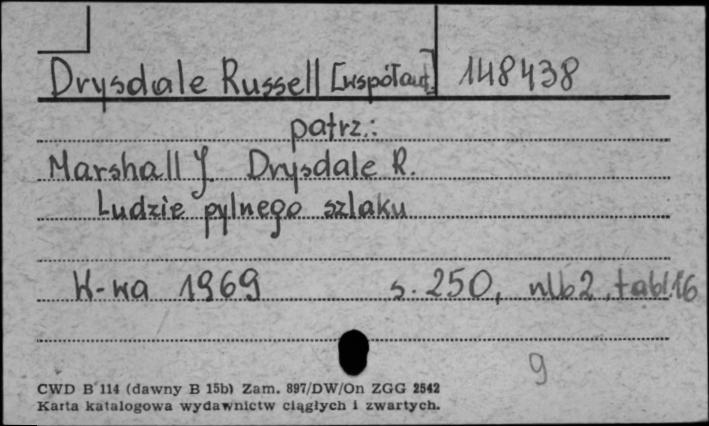 Drysdale Russell [współaut.] 148438
patrz.:
Marshall J. Drysdale R.
Ludzie pylnego szlaku
W-wa 1969 s. 250, nlb 2, tabl. 16
9
CWD B 114 (dawny B 15b) Zam. 897/DW/On ZGG 2542
Karta katalogowa wydawnictw ciągłych i zwartych.